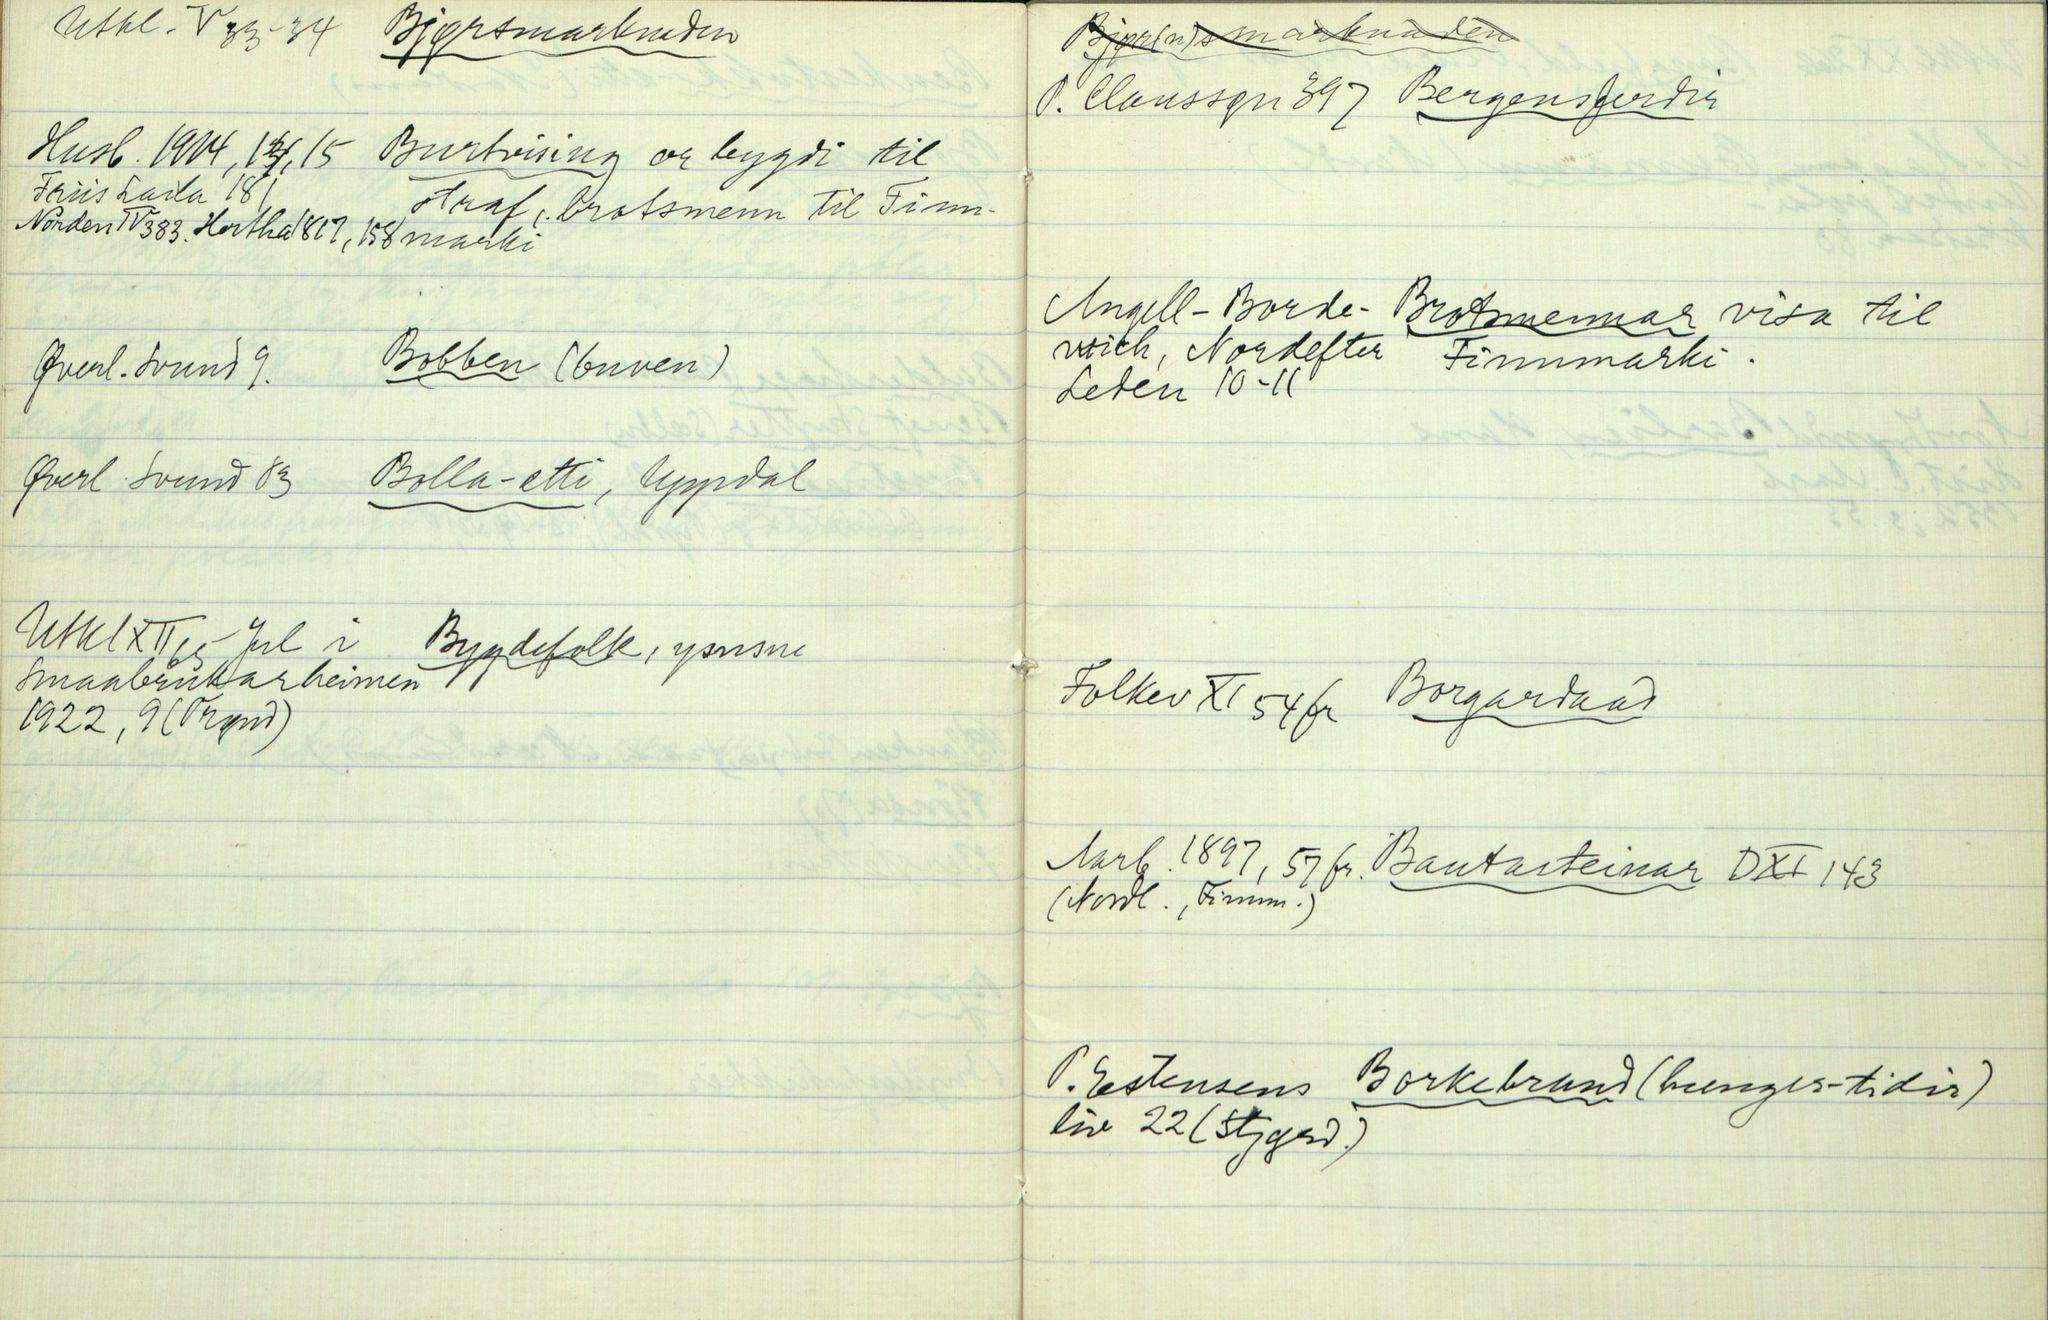 Utkl. V 33-34 Bjørsmarknaden
Husb. 1914, 15 Burtvising or bygdi til
Friis Laila 181 straf, brotsmenn til Finn-
Norden IV 383. Hertha 1817, 158 marki
Øverl. Svund 9. Bobben (buven)
Øverl. Svund 83 Bolla-etti, Uppdal
Utkl XII Jul i Bygdefolk, ymsne
Smaabrukarheimen
1922, 9 (Trønd)
Bjør(n)smarknaden
P. Claussøn 397 Bergensferdir
Angell-Borde- Brotsmennar visa til
wich, Nordefter Finnmarki.
Leden 10-11
Folkev XI 54 fr Borgardaad
Aarb. 1897, 57 fr. Bautasteinar DXI 143
(Nordl., Finnm.)
P. Estensens Borkebraud (hunger-tidir)
liv 22 (Stjørd.)